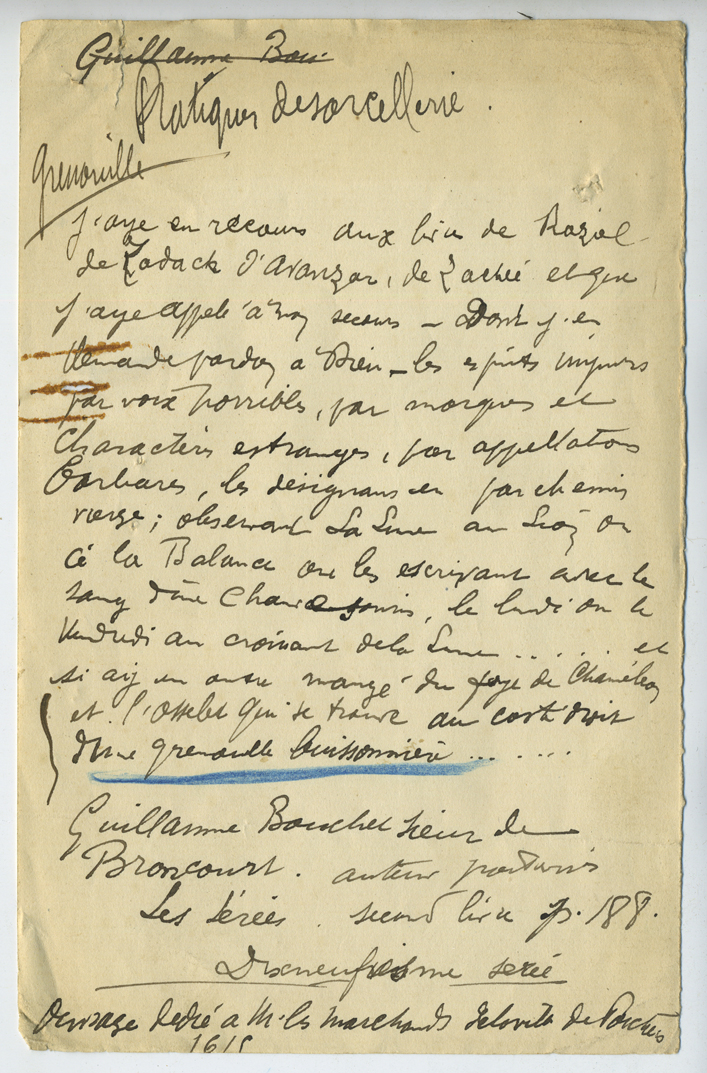 Guillaume Bou
Pratiques de sorcellerie.
Grenouille
J'aye eu recours aux livres de Raziel
de Zadack d'Avanzar, de Zachée et que
j'aye appelé à mon secours – Dont j'en
demande pardon à Dieu – les esprits
par voix horribles, par marques et
Characteres estranges, par appellations
barbares, les désignans en parchemin
vierge; observant La Lune au Lion ou
à la Balance ou les escrivant avec le
sang d'une Chauve souris, le lundi ou le
Vendredi au croissant de la Lune ..... et
si ay en outre mangé du foye de Chaméleon
et l'osselet qui se trouve au costé droit
d'une grenouille buissonnière ......
Guillaume Bouchet sieur de
Broncourt. auteur poitevin
Les Sérées. second livre p. 188.
Dixneufiesme serée
Ouvrage dedié à M. les marchands de la ville de Poictiers
1615